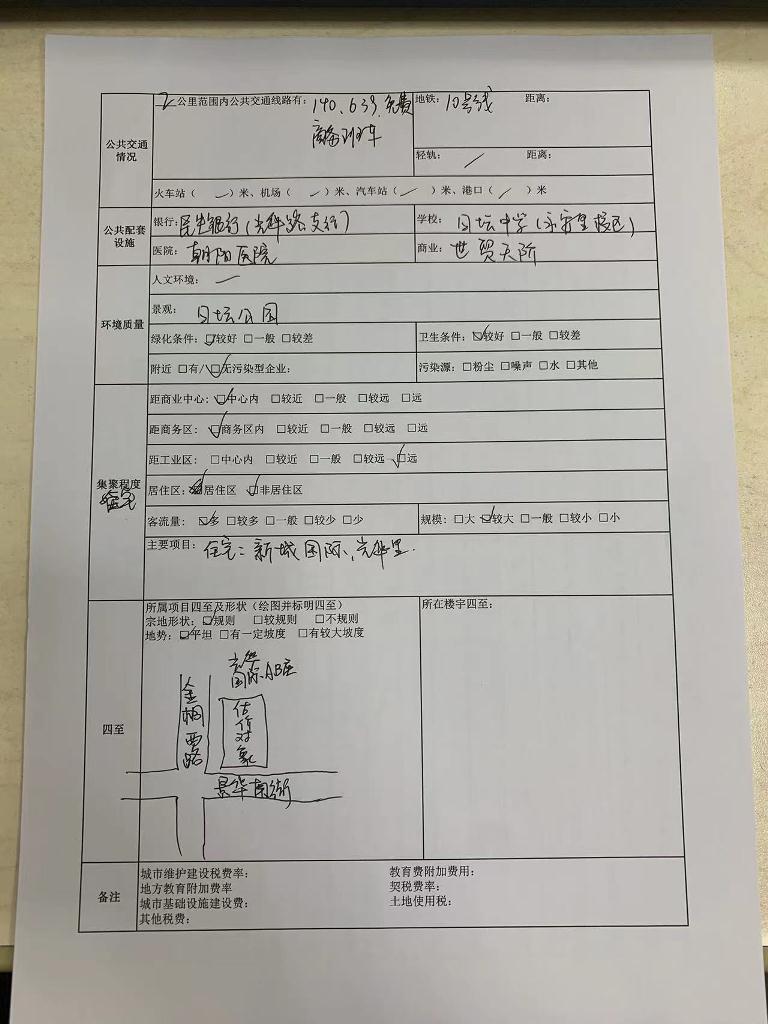 2公里范围内公共交通线路有：140、639、免费
商务班车
地铁：10号线 距离：
公共交通
情况
轻轨：／ 距离：
火车站（ ／ ）米、机场（ ／ ）米、汽车站（ ／ ）米、港口（ ／ ）米
公共配套
设施
银行：民生银行（光华路支行）
学校：日坛中学（永安里校区）
医院：朝阳医院
商业：世贸天阶
环境质量
人文环境：
景观：日坛公园
绿化条件：☑较好 □一般 □较差
卫生条件：☑较好 □一般 □较差
附近 □有/☑无污染型企业：
污染源：□粉尘 □噪声 □水 □其他
集聚程度
住宅
距商业中心：☑中心内 □较近 □一般 □较远 □远
距商务区：☑商务区内 □较近 □一般 □较远 □远
距工业区：□中心内 □较近 □一般 □较远 ☑远
居住区：□居住区 ☑非居住区
客流量：☑多 □较多 □一般 □较少 □少
规模：□大 ☑较大 □一般 □较小 □小
主要项目：住宅：新城国际、光华里.
四至
所属项目四至及形状（绘图并标明四至）
宗地形状：☑规则 □较规则 □不规则
地势：☑平坦 □有一定坡度 □有较大坡度
光华
国际AB座
金桐西路
估价对象
景华南街
所在楼宇四至：
备注
城市维护建设税费率：
教育费附加费用：
地方教育附加费率
契税费率：
城市基础设施建设费：
土地使用税：
其他税费：